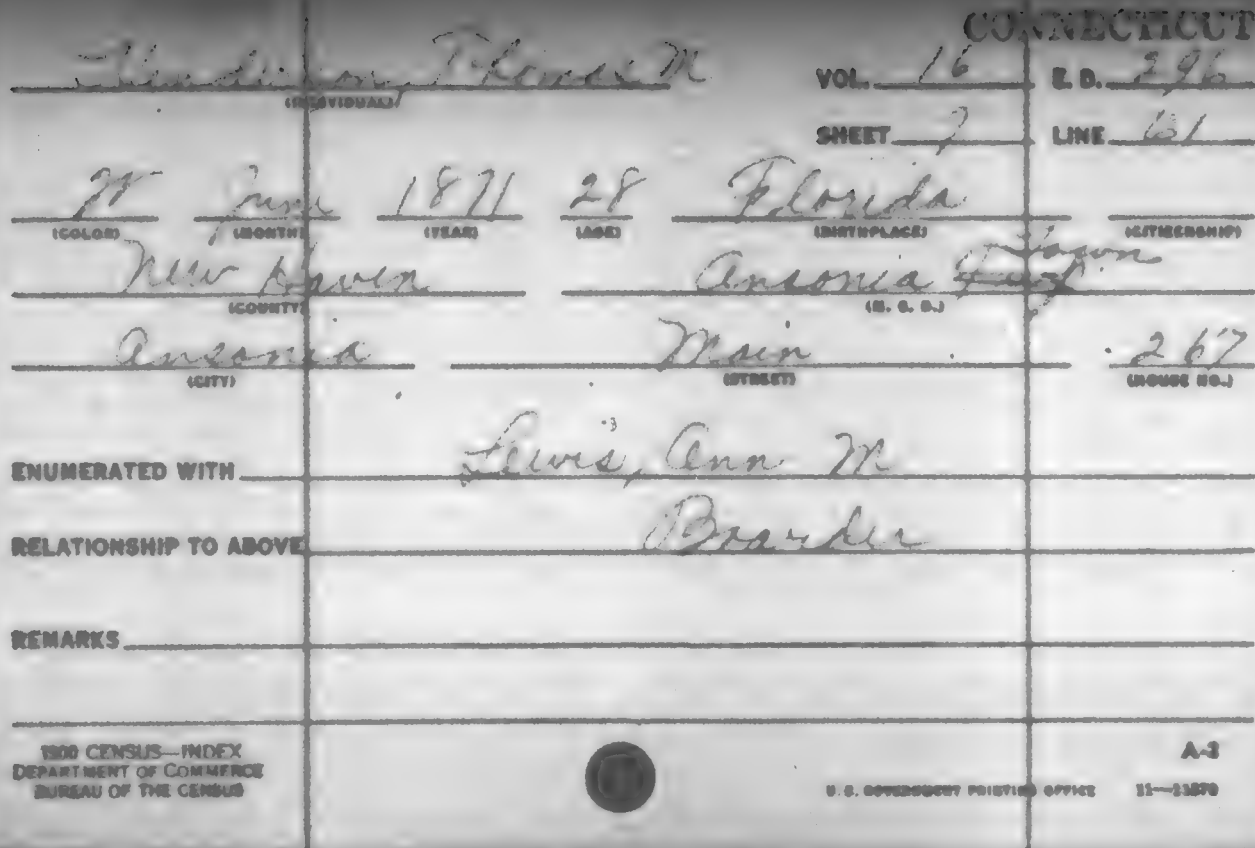 CONNECTICUT
Henderson, Thomas M
(INDIVIDUAL)
VOL. 16 E. D. 296
SHEET 7 LINE 61
W June 1871 28 Florida
(COLOR) (MONTH) (YEAR) (AGE) (BIRTHPLACE) (CITIZENSHIP)
New Haven Ansonia Town
(COUNTY) (M. C. D.)
Ansonia Main 267
(CITY) (STREET) (HOUSE NO.)
ENUMERATED WITH Lewis, Ann M
RELATIONSHIP TO ABOVE Boarder
REMARKS
1900 CENSUS—INDEX
DEPARTMENT OF COMMERCE
BUREAU OF THE CENSUS
A-2
U.S. GOVERNMENT PRINTING OFFICE